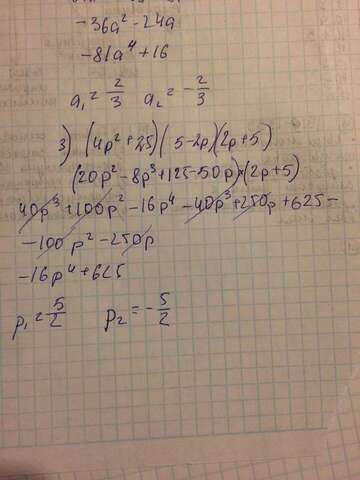 -36a² - 24a
-81a⁴ + 16
a₁ = 2/3   a₂ = -2/3
3) (4p² + 25)(5-2p)(2p+5)
(20p² - 8p³ + 125 - 50p)*(2p+5)
40p³ + 100p² - 16p⁴ - 40p³ + 250p + 625 -
- 100p² - 250p
-16p⁴ + 625
p₁ = 5/2   p₂ = -5/2